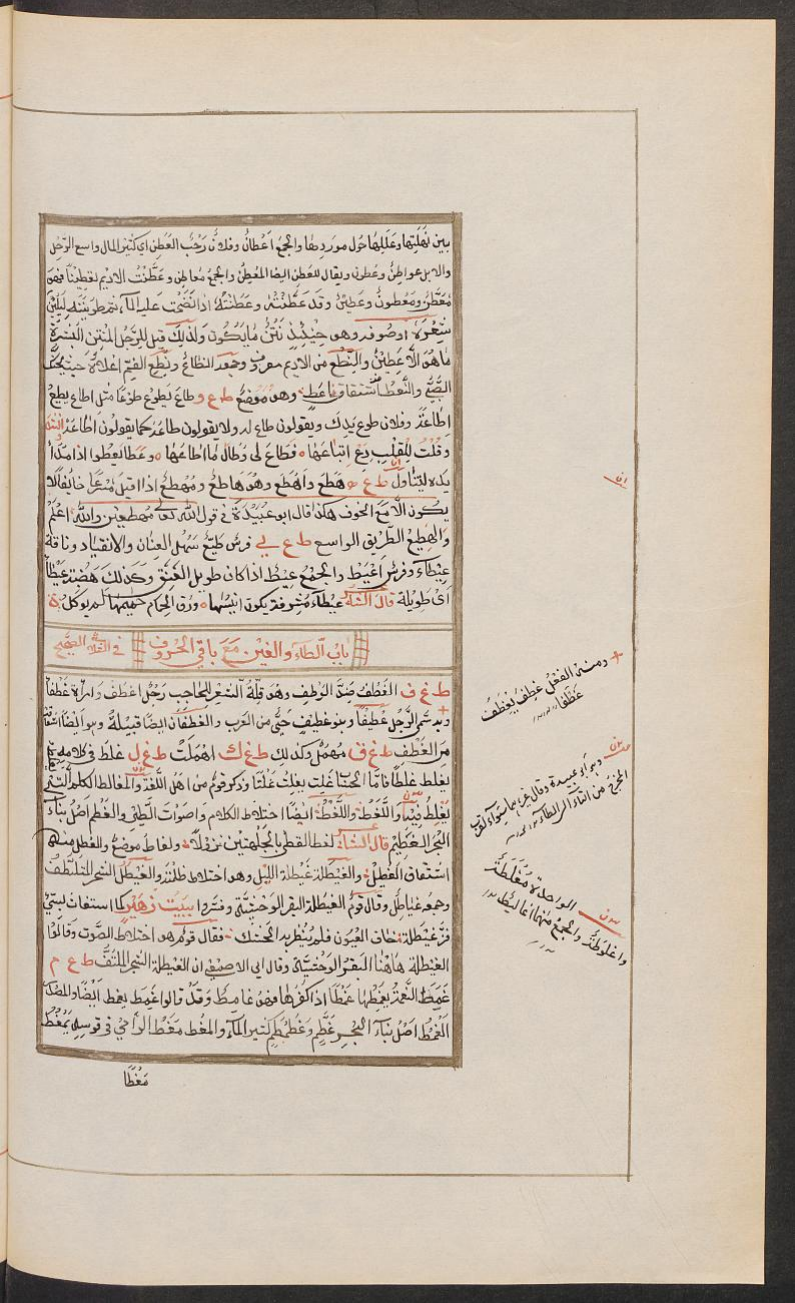 بين نهلتها وعللها حول موردها والجمع اعطان وفلان رحب العطن اي كثير المال واسع الرحل
والابل عواطن وعطون ويقال للعطن ايضا المعطن والجمع معاطن وعطنت الاديم تعطينا فهو
معطن ومعطون وعطين وقد عطنته وعطنته اذا نضحت عليه الماء ثم طويته ليلين
شعره او صوفه وهو حينئذ نتن ما يكون ولذلك قيل للرجل المنتن البشرة
ما هو الا عطين والنطع من الاديم معروف وجمعه انطاع ونطع الفم اعلاه حيث يحنك
الصبي والنعط اشتقاق ناعط وهو موضع ط ع و طاع يطوع طوعا مثل اطاع يطيع
اطاعة وفلان طوع يدك ويقولون طاع له ولا يقولون طاعه كما يقولون اطاعه
وقلت للقلب دع اتباعها فطاع لي وطال ما اطاعها وعطا يعطوا اذا مد
يده ليتناول ط ع ه هطع واهطع وهو هاطع ومهطع اذا اقبل مسرعا خائفا لا
يكون الا مع الخوف هكذا قال ابو عبيدة في قول الله تعالى مهطعين والله اعلم
والهطيع الطريق الواسع ط ع ي فرس طيع سهل العنان والانقياد وناقة
عيطاء وفرس اعيط والجمع عيط اذا كان طويل العنق وكذلك هضبة عيطاء
اي طويلة قال الشاعر عيطاء مشرفة يكون انيسها ورق الحمام جميمها لم يوكل
باب الطاء والغين مع باقي الحروف في الثلاثي الصحيح
ط غ ف الغطف ضد الوطف وهو قلة الشعر للحاجب رجل اغطف وامراة غطفا
وبه سمي الرجل غطيفا وبنو غطيف حي من العرب والغطفان ايضا قبيلة وهو ايضا اشتقاقه
من الغطف ط غ ق مهمل وكذلك ط غ ك اهملت ط غ ل غلط في كلامه
يغلط غلطا فاما الحساب غلت يغلت غلتا وذكر قوم من اهل اللغة والمغالط الكلم التي
يغلط فيها واللغط واللغط ايضا اختلاط الكلام واصوات الطير والغطم اصل بناء
البحر الغطيم قال الشاعر لغط القطا بالجلهتين نزولا ولغاط موضع والغطل منه
اشتقاق الغيطل والغيطلة غيطلة الليل وهو اختلاط ظلمته والغيطل الشجر الملتف
وجمعه غياطل وقال قوم الغيطلة البقر الوحشية وفسروا ببيت زهير كما استغاث بسيئ
فز غيطلة خاف العيون فلم ينظر به الحشك فقال قوم هو اختلاط الصوت وقالوا
الغيطلة هاهنا البقر الوحشية وقال ابي الاصمعي ان الغيطلة الشجر الملتف ط غ م
غمط النعمة يغمطها غمطا اذا كفرها فهو غامط وقد قالوا غمط يغمط ايضا والمصدر
الغمط اصل بناء البحر غطم وغطمطم كثير الماء والمغط مغط الرامي في قوسه يمغط
مغطا
ومنه الفعل غطف يغطف
غطفا
وهو ابو عبيدة وقال غيرهما سواء لقرب
المخرج من التاء الى الطاء
الواحدة مغلطة
واغلوطة والجمع منها اغاليط